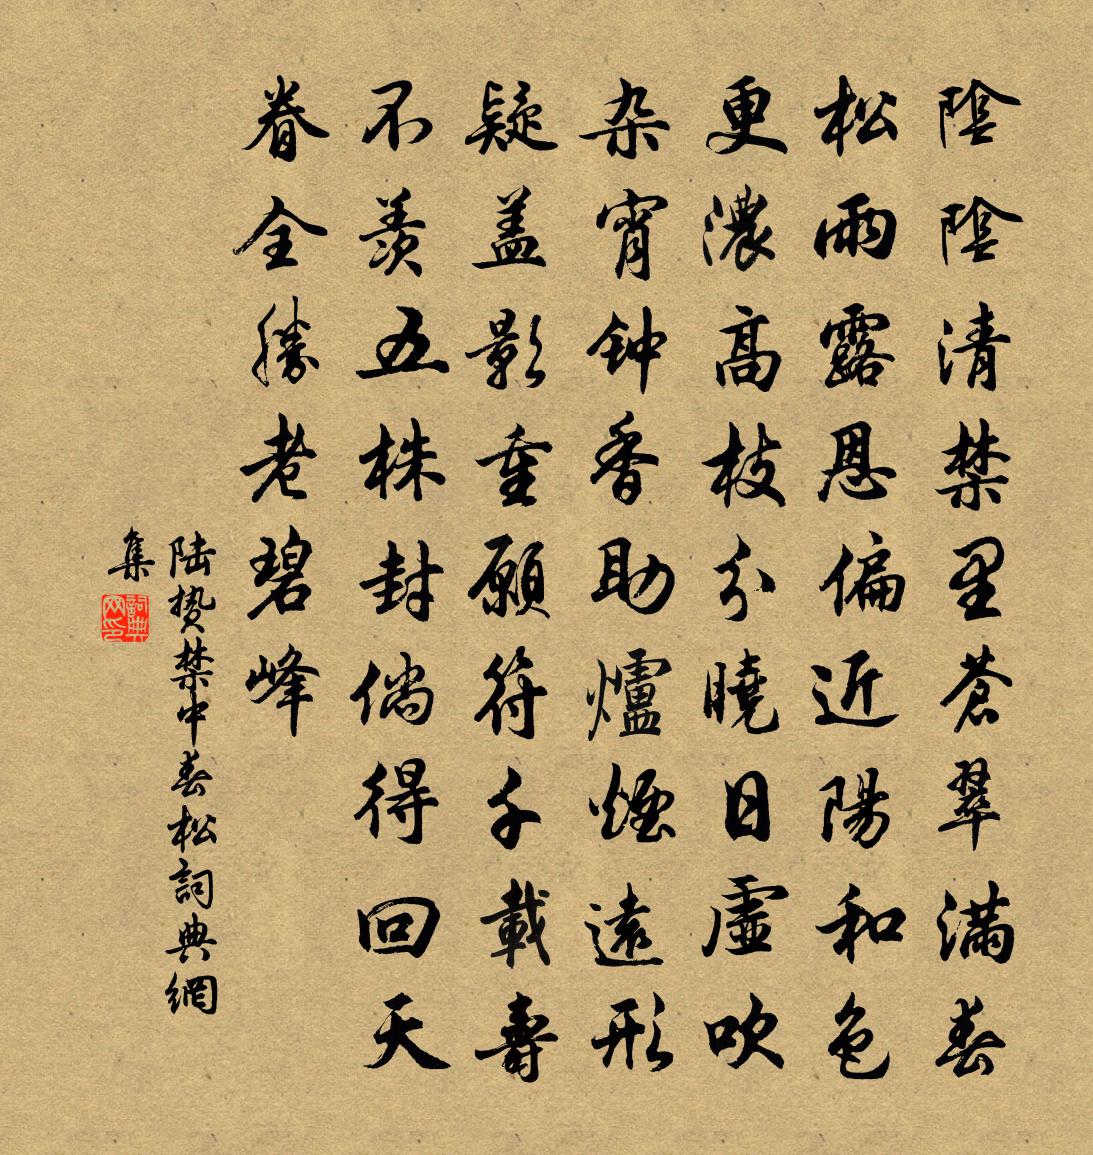 陰陰清禁里蒼翠滿春
松雨露恩偏近陽和色
更濃高枝分曉日虛吹
杂宵钟香助爐煙遠形
疑盖影重願符千載壽
不羨五株封倘得回天
眷全勝老碧峰
陆贽禁中春松詞典網
集
詞典
网印